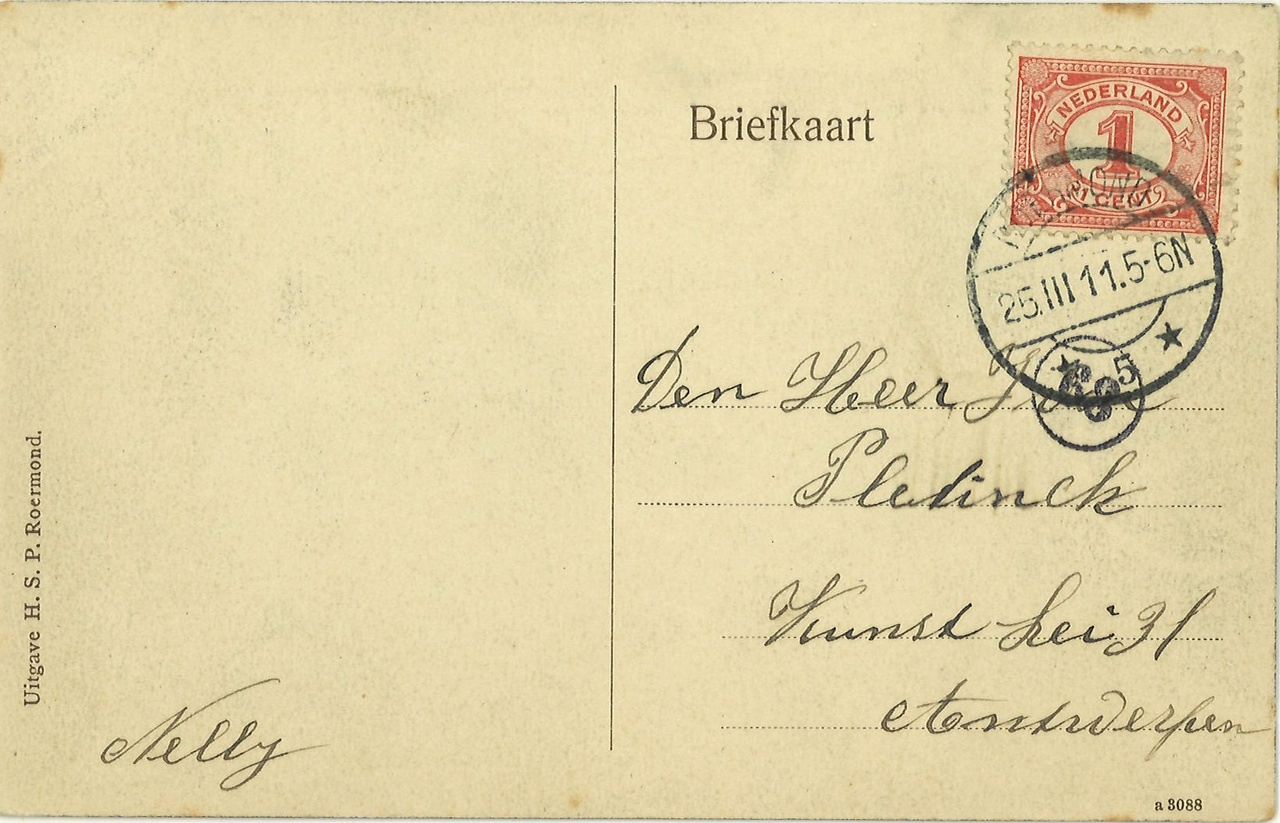 Briefkaart
NEDERLAND
1
1 CENT
25.III 11.5-6N
5
69
Den Heer
Pletinck
Kunst Lei 31
Antwerpen
Nelly
Uitgave H. S. P. Roermond.
a 3088